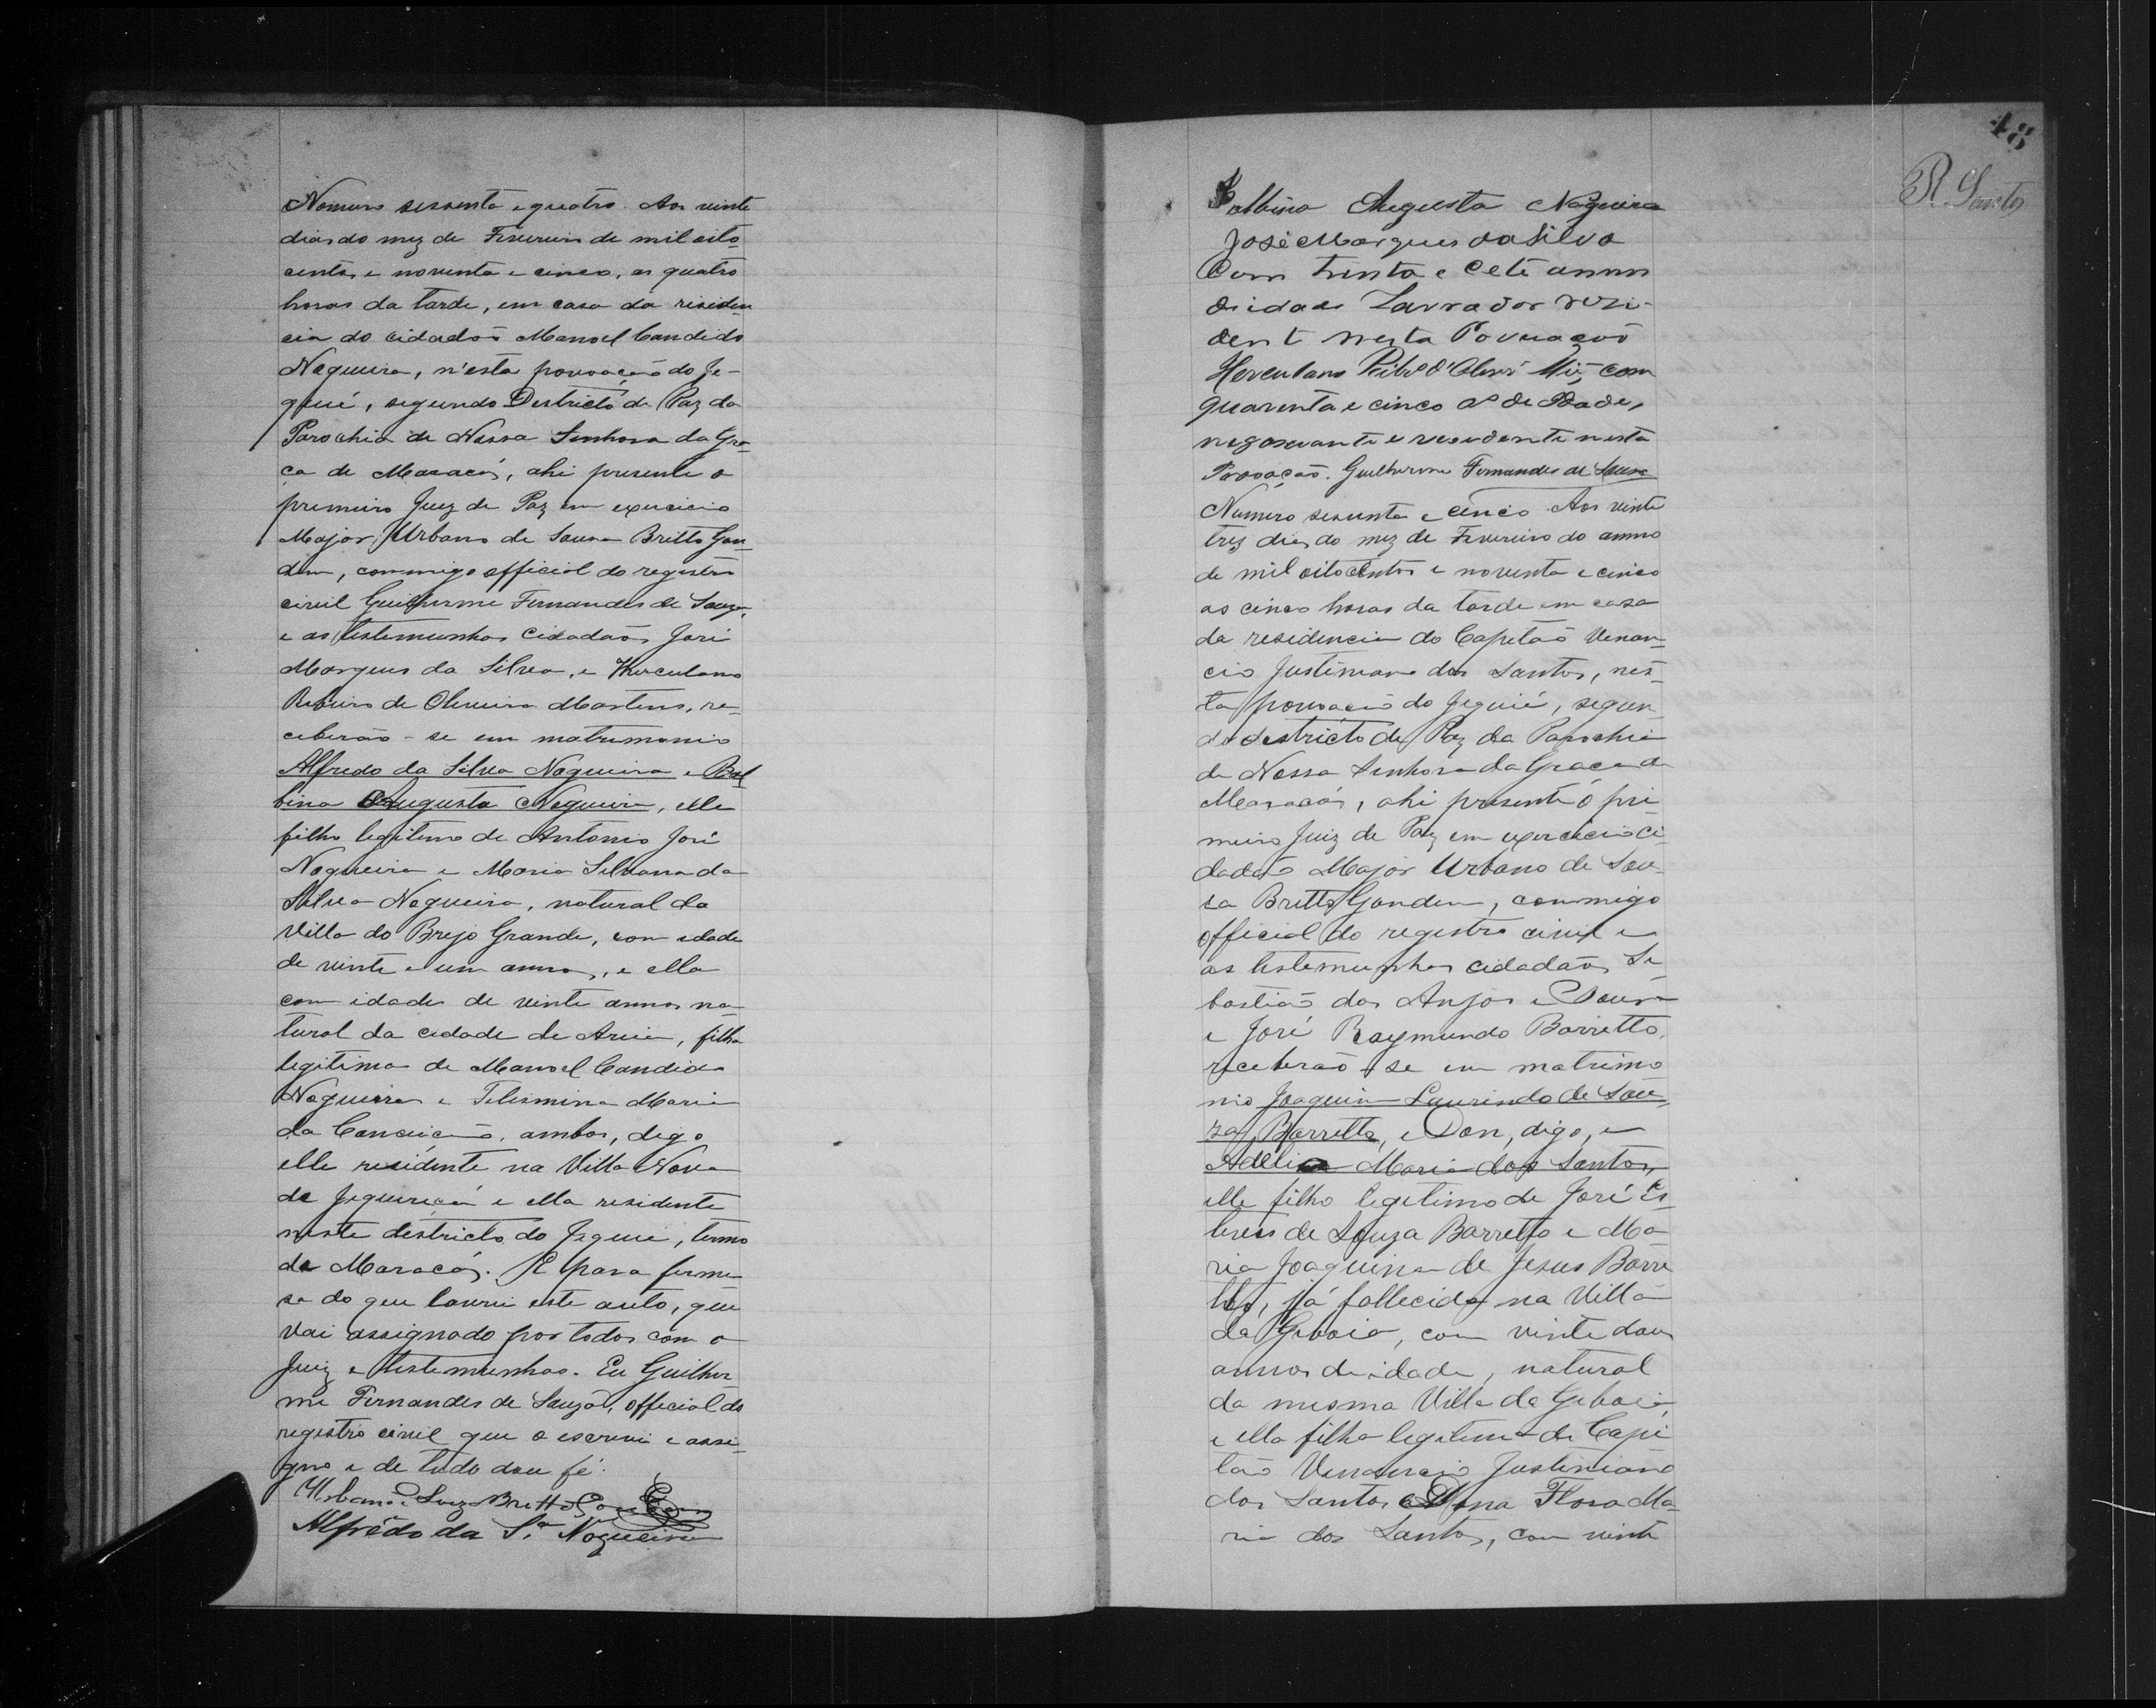 Numero sessenta e quatro. Aos vinte
dias do mez de Fevereiro de mil oito
centos e noventa e cinco, as quatro
horas da tarde, em casa da residen
cia do cidadão Manoel Candido
Nogueira, n'esta povoação do Je-
quié, segundo Destricto de Paz da
Parochia de Nossa Senhora da Gra
ça de Maracás, ahi presente o
premeiro Juiz de Paz em exercicio
Major Urbano de Souza Britto Gon
dim, commigo official do registro
civil Guilherme Fernandes de Souza,
e as testemunhas cidadãos José
Marques da Silva, e Herculano
Ribeiro de Oliveira Martins, re-
ceberão-se em matrimonio
Alfredo da Silva Nogueira e Bal
bina Augusta Nogueira, elle
filho legitimo de Antonio José
Nogueira e Maria Silvana da
Silva Nogueira, natural da
Villa do Brejo Grande, com edade
de vinte e um annos, e ella
com idade de vinte annos na-
tural da cidade de Areia, filha
legitima de Manoel Candido
Nogueira e Maria
da Conceição, ambos, digo
elle residente na Villa Nova
de Jequiriçá e ella residente
neste destricto do Jequié, termo
de Maracás. E para firme
sa do que lavrei este auto, que
vai assignado por todos com o
Juiz e testemunhas. Eu Guilher
me Fernandes de Souza, official do
registro civil que o escrevi e assi-
gno e de tudo dou fé.
Urbano de Souza Britto Gondim
Alfrêdo da S.ª Nogueira
48
R. Santos
Balbina Augusta Nogueira
José Marques da Silva
Com trinta e cete annos
didade Lavrador rezi-
dent nesta Povuação
Herculano Rib.º d'Oliv.ª com
quarenta e cinco a.ˢ de Idade,
negosciante e residente nesta
Povoação. Guilherme Fernandes de Souza
Numero sessenta e cinco Aos vinte
trez dias do mez de Fevereiro do anno
de mil oitocentos e noventa e cinco
as cinco horas da tarde em casa
da residencia do Capitão Venan-
cio Justiniano dos Santos, nes-
ta povoação do Jequié, segun-
do destricto de Paz da Parochia
de Nossa Senhora da Graça de
Maracás, ahi presente o pri
meiro Juiz de Paz em exercicio ci-
dadão Major Urbano de Sou-
sa Britto Gondim, commigo
official do registro civil e
as testemunhas cidadãos Se-
bastião dos Anjos e Souza
e José Raymundo Barretto,
receberão se em matrimo
nio Joaquim Laurindo de Sou-
za Barretto, e Don, digo, e
Adelia Maria dos Santos,
elle filho legitimo de José Es
teves de Souza Barretto e Ma-
ria Joaquina de Jesus Barre
tto, já fallecida na Villa
da Giboia, com vinte dous
annos de idade, natural
da mesma Villa da Giboia,
e ella filha legitima de Capi
tão Venancio Justiniano
dos Santos e Dona Flora Ma-
ria dos Santos, com vinte